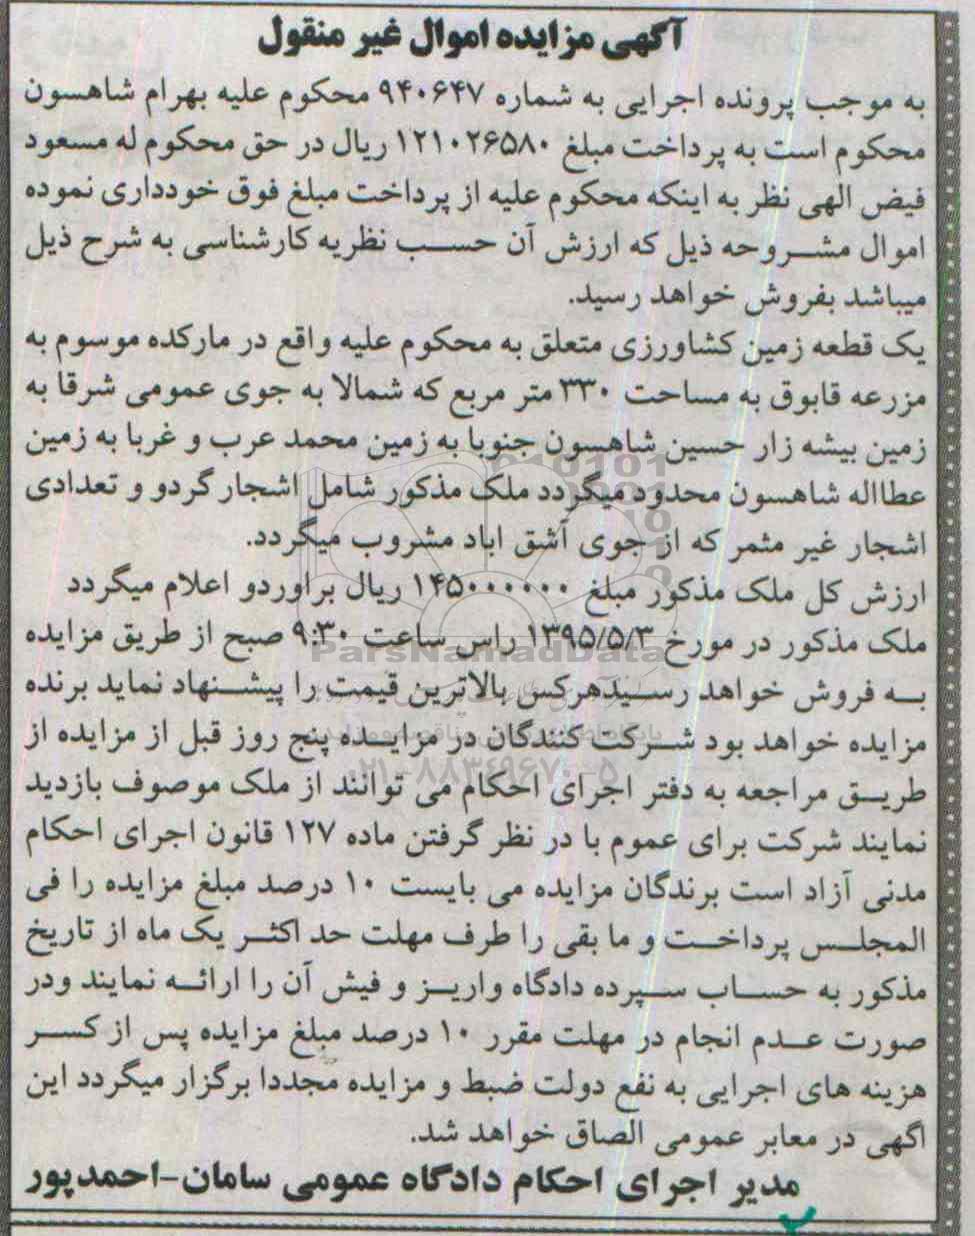 آگهی مزایده اموال غیر منقول
به موجب پرونده اجرایی به شماره ۹۴۰۶۴۷ محکوم علیه بهرام شاهسون
محکوم است به پرداخت مبلغ ۱۲۱۰۲۶۵۸۰ ریال در حق محکوم له مسعود
فیض الهی نظر به اینکه محکوم علیه از پرداخت مبلغ فوق خودداری نموده
اموال مشروحه ذیل که ارزش آن حسب نظریه کارشناسی به شرح ذیل
میباشد بفروش خواهد رسید.
یک قطعه زمین کشاورزی متعلق به محکوم علیه واقع در مارکده موسوم به
مزرعه قابوق به مساحت ۳۳۰ متر مربع که شمالا به جوی عمومی شرقا به
زمین بیشه زار حسین شاهسون جنوبا به زمین محمد عرب و غربا به زمین
عطااله شاهسون محدود میگردد ملک مذکور شامل اشجار گردو و تعدادی
اشجار غیر مثمر که از جوی آشق اباد مشروب میگردد.
ارزش کل ملک مذکور مبلغ ۱۴۵۰۰۰۰۰۰ ریال براوردو اعلام میگردد
ملک مذکور در مورخ ۱۳۹۵/۵/۳ راس ساعت ۹:۳۰ صبح از طریق مزایده
به فروش خواهد رسیدهرکس بالاترین قیمت را پیشنهاد نماید برنده
مزایده خواهد بود شرکت کنندگان در مزایده پنج روز قبل از مزایده از
طریق مراجعه به دفتر اجرای احکام می توانند از ملک موصوف بازدید
نمایند شرکت برای عموم با در نظر گرفتن ماده ۱۲۷ قانون اجرای احکام
مدنی آزاد است برندگان مزایده می بایست ۱۰ درصد مبلغ مزایده را فی
المجلس پرداخت و ما بقی را ظرف مهلت حد اکثر یک ماه از تاریخ
مذکور به حساب سپرده دادگاه واریز و فیش آن را ارائه نمایند ودر
صورت عدم انجام در مهلت مقرر ۱۰ درصد مبلغ مزایده پس از کسر
هزینه های اجرایی به نفع دولت ضبط و مزایده مجددا برگزار میگردد این
اگهی در معابر عمومی الصاق خواهد شد.
مدیر اجرای احکام دادگاه عمومی سامان-احمدپور
ParsNamadData
۰۲۱-۸۸۳۴۹۶۷۰-۵